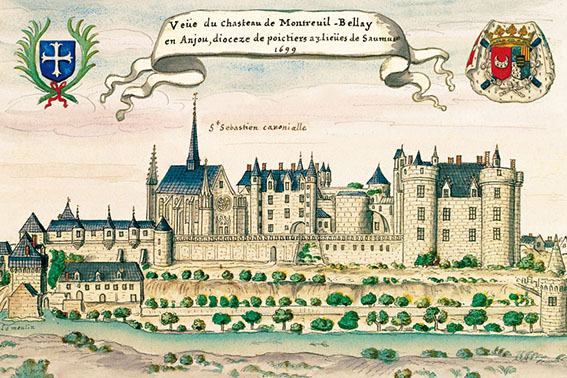 Veüe du Chasteau de Montreuil-Bellay
en Anjou, dioceze de poictiers a 3. lieües de Saumur
1699
Sᵗᵉ Sebastien canonialle